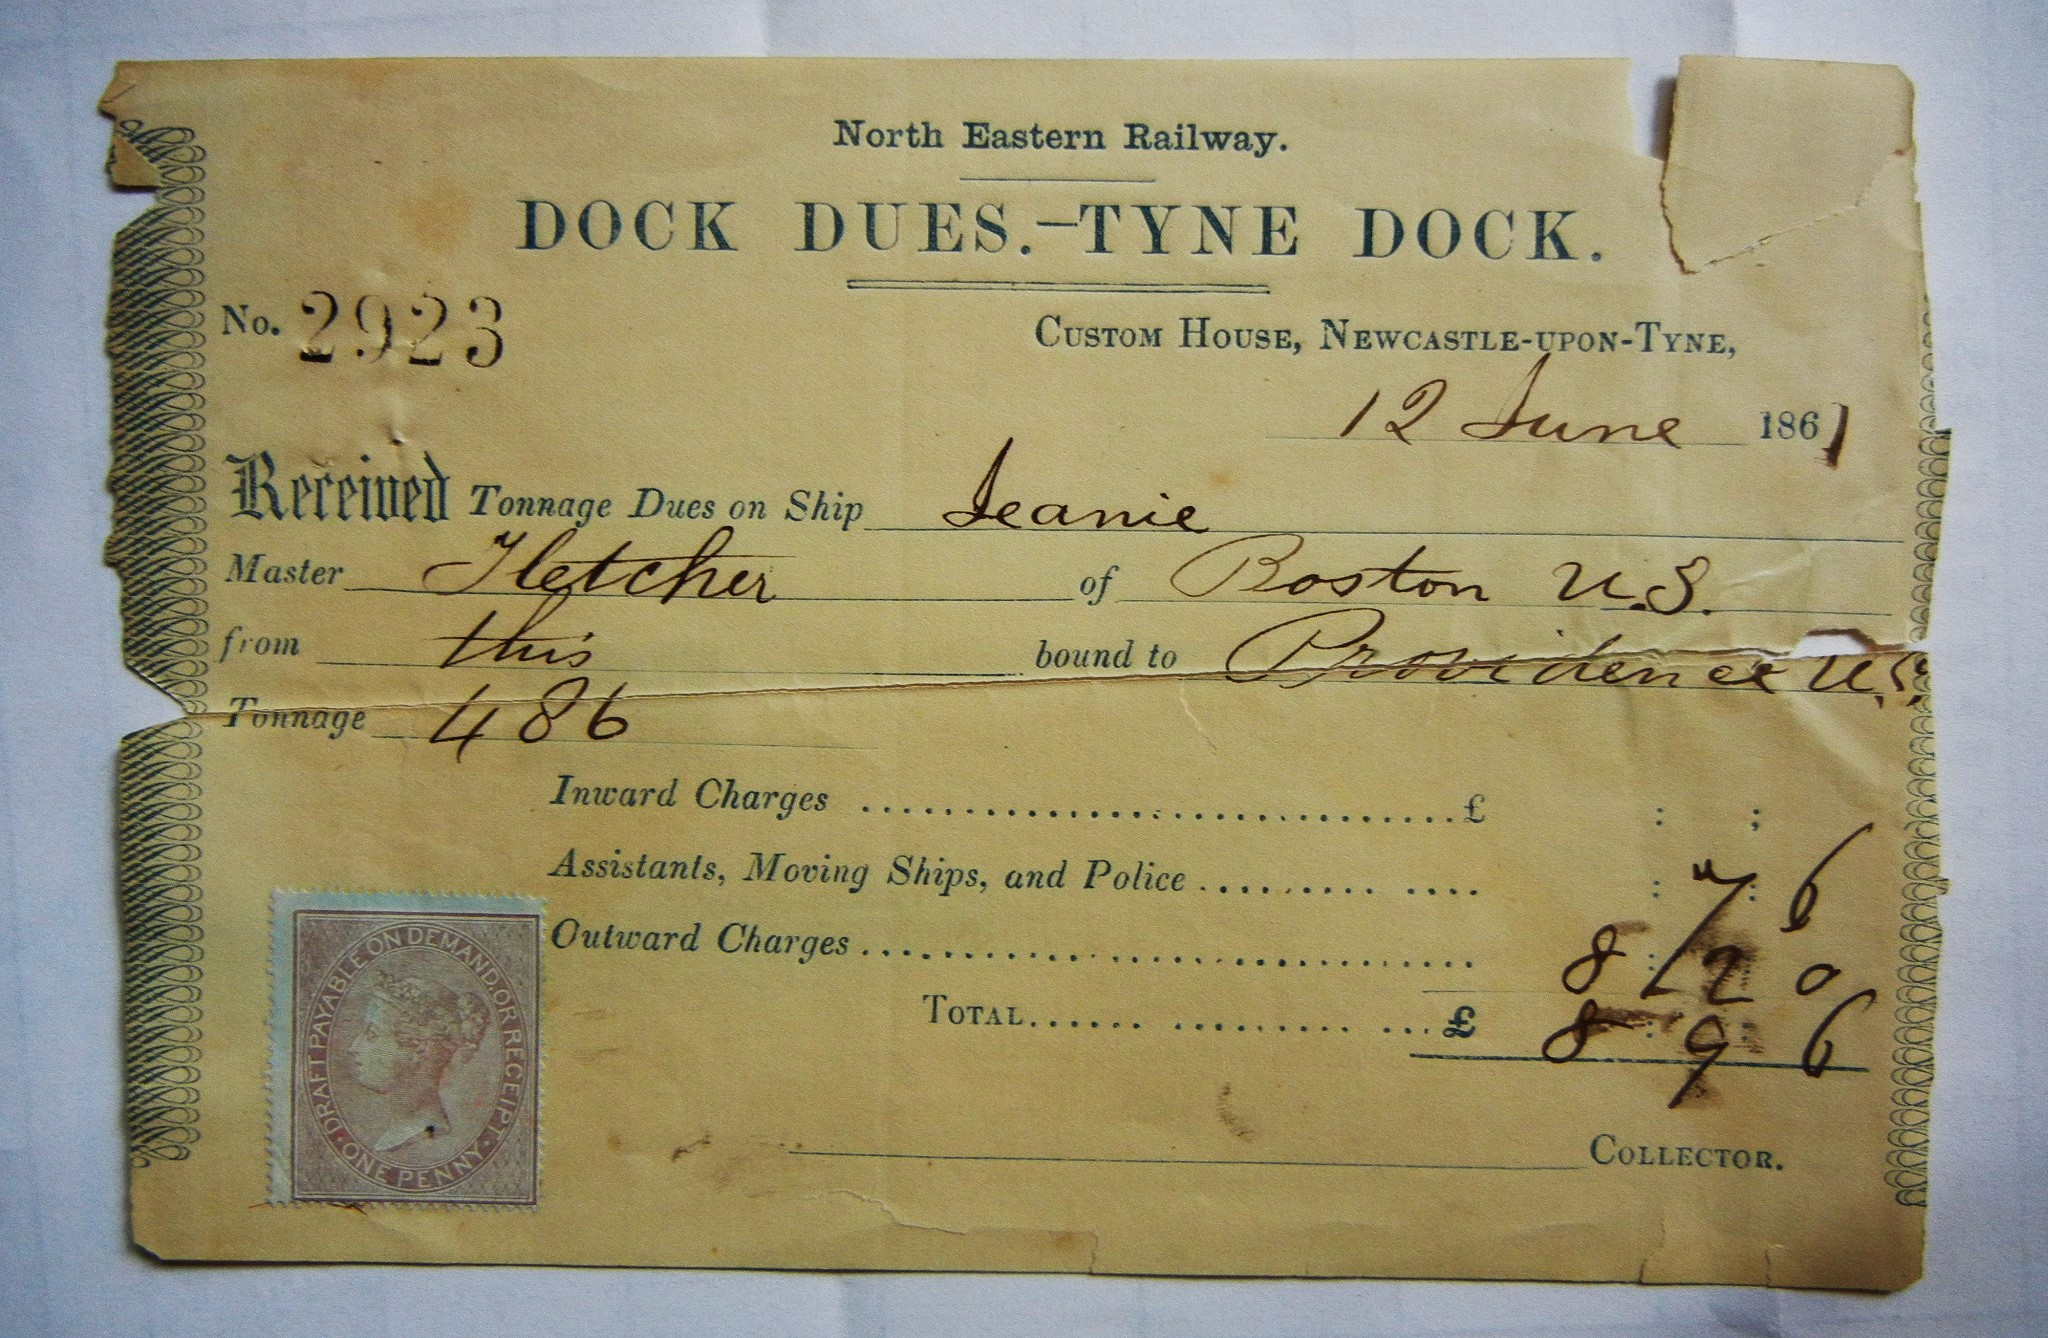 North Eastern Railway.
DOCK DUES.—TYNE DOCK.
No. 2923
CUSTOM HOUSE, NEWCASTLE-UPON-TYNE,
12 June 1861
Received Tonnage Dues on Ship Jeanie
Master Fletcher of Boston U.S.
from this bound to Providence U.S.
Tonnage 486
Inward Charges ........ £ : :
Assistants, Moving Ships, and Police ........ : 7 : 6
Outward Charges ........ 8 : 2 0
TOTAL ........ £ 8 : 9 6
COLLECTOR.
DRAFT PAYABLE ON DEMAND OR RECEIPT · ONE PENNY ·